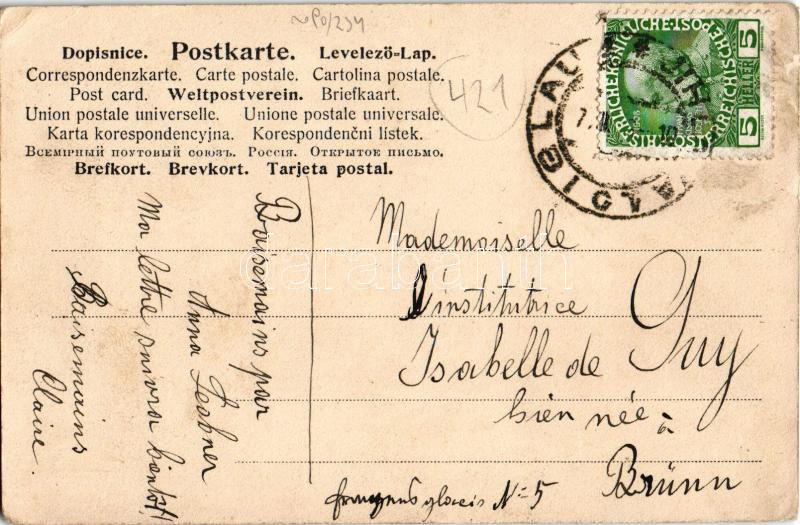 421
Dopisnice. Postkarte. Levelező-Lap.
Correspondenzkarte. Carte postale. Cartolina postale.
Post card. Weltpostverein. Briefkaart.
Union postale universelle. Unione postale universale.
Karta korespondencyjna. Korespondenční lístek.
Всемірный почтовый союзъ. Россія. Открытое письмо.
Brefkort. Brevkort. Tarjeta postal.
5 HELLER 5
Baisemains par
Anna
Ma lettre suivra bientôt!
Baisemains
Claire.
Mademoiselle
l'institutrice
Isabelle de Guy
bien née
à
Brünn
glacis N=5
darabanth